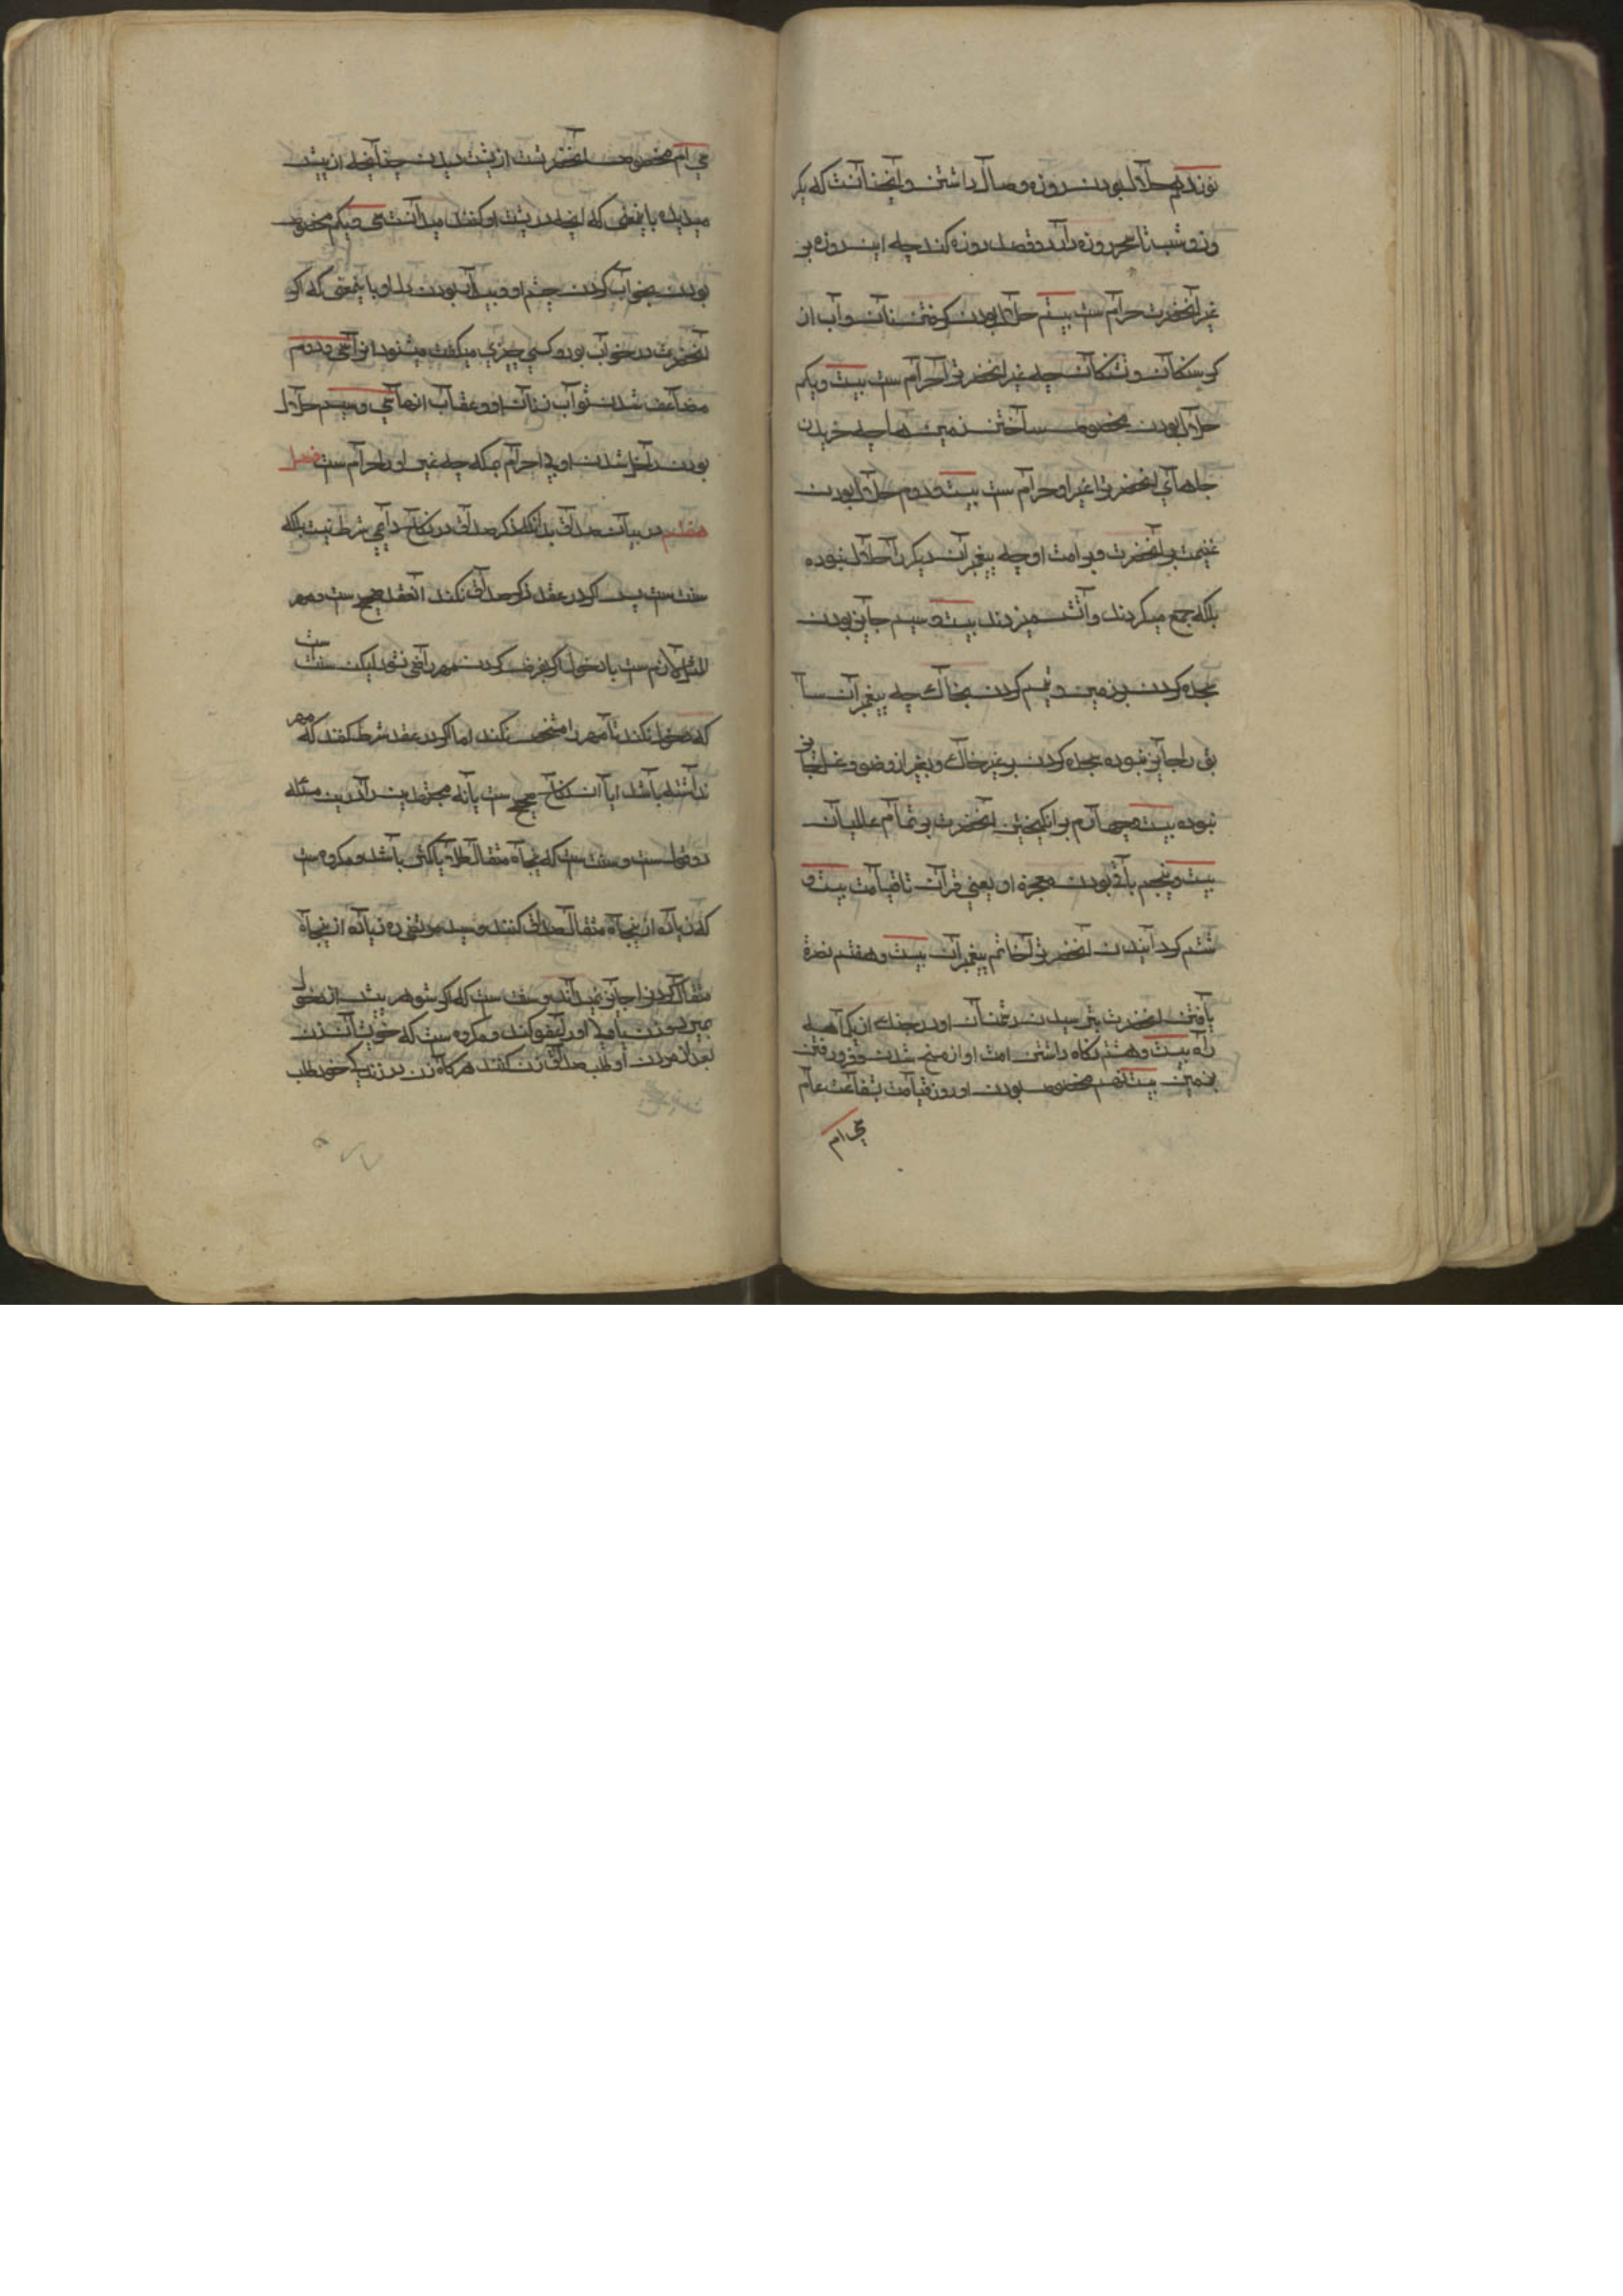 نوزدهم حلال بودن روزه وصال داشتن و اینچنانست که یکر
وز و شب تا سحر روزه دارد و قصد روزه کند چه این روزه بر
غیر آنحضرت حرام ست بیستم حلال بودن گرفتن نان و آب از
گرسنگان و تشنگان چه غیر آنحضرت را حرام ست بیست و یکم
حلال بودن مخصوص ساختن زمین ها چه خریدن
جاهای آنحضرت را غیر او حرام ست بیست و دوم حلال بودن
غنیمت بر آنحضرت و بر امت او چه پیغمبران دیگر را حلال نبوده
بلکه جمع میکردند و آتش میزدند بیست و سیم جایز بودن
سجده کردن بر زمین و تیمم کردن بخاک چه پیغمبران سا
بق را جایز نبوده سجده کردن بر غیر خاک و بغیر از وضو و غسل جایز
نبوده بیست و چهارم برانگیختن آنحضرت بر تمام عالمیان
بیست و پنجم باقی بودن معجزه او یعنی قرآن تا قیامت بیست و
ششم گردانیدن آنحضرت را خاتم پیغمبران بیست و هفتم نصرة
یافتن آنحضرت بترسیدن دشمنان او در جنک از یکماهه
راه بیست و هشتم نکاه داشتن امت او از مسخ شدن و فرو رفتن
بزمین بیست نهم مخصوص بودن او روز قیامت بشفاعت عام
سی ام
سی ام مخصوص آنحضرتست از پشت دیدن چنانچه از پیش
میدیده باینمعنی که آنچه در پشت او کنند میدانست سی و یکم مخصوص
بودن بخواب کردن چشم او و بیدار بودن دل او باینمعنی که اگر
آنحضرت در خواب بود و کسی چیزی میکفت میشنود سی و دوم
مضاعف شدن ثواب زنان او و عقاب آنها سی و سیم حلال
بودن داخل شدن او بی احرام بمکه چه غیر او را حرام ست فصل
هفتم در بیان صداق بدانکه ذکر صداق در نکاح دایمی شرط نیست بلکه
سنت ست پس اگر در عقد ذکر صداق نکند آنعقد صحیح ست و مهر
المثل لازم ست با دخول اگر بفرض کردن مهر راضی نشود لیکن سنت ست
که دخول نکند تا مهر را مشخص نکند اما اگر در عقد شرط کند که مهر
نداشته باشد ایا آن نکاح صحیح ست یا نه مجتهدین را درین مسئله
دو قول ست و سنت ست که پنجاه مثقال طلا یا کمتر باشد و مکروه ست
که زیاده از پنجاه مثقال صداق کنند و سید مرتضی ره زیاده از پنجاه
مثقال کردن را جایز نمیداند و سنت ست که اگر شوهر پیش از دخول
بمیرد و زن یا ولی او را عفو کند و مکروه ست که خویشان زن
بعد از مردن او طلب صداق زن کنند هرگاه زن در زندگی خود طلب